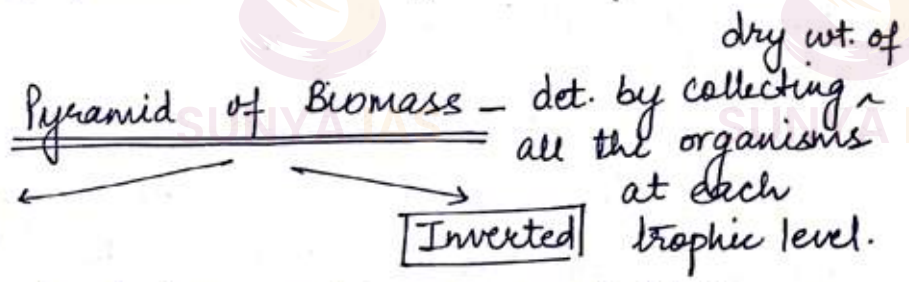 dry wt. of
Pyramid of Biomass – det. by collecting ^
all the organisms
at each
Inverted trophic level.
SUNYA IAS
SUNYA I